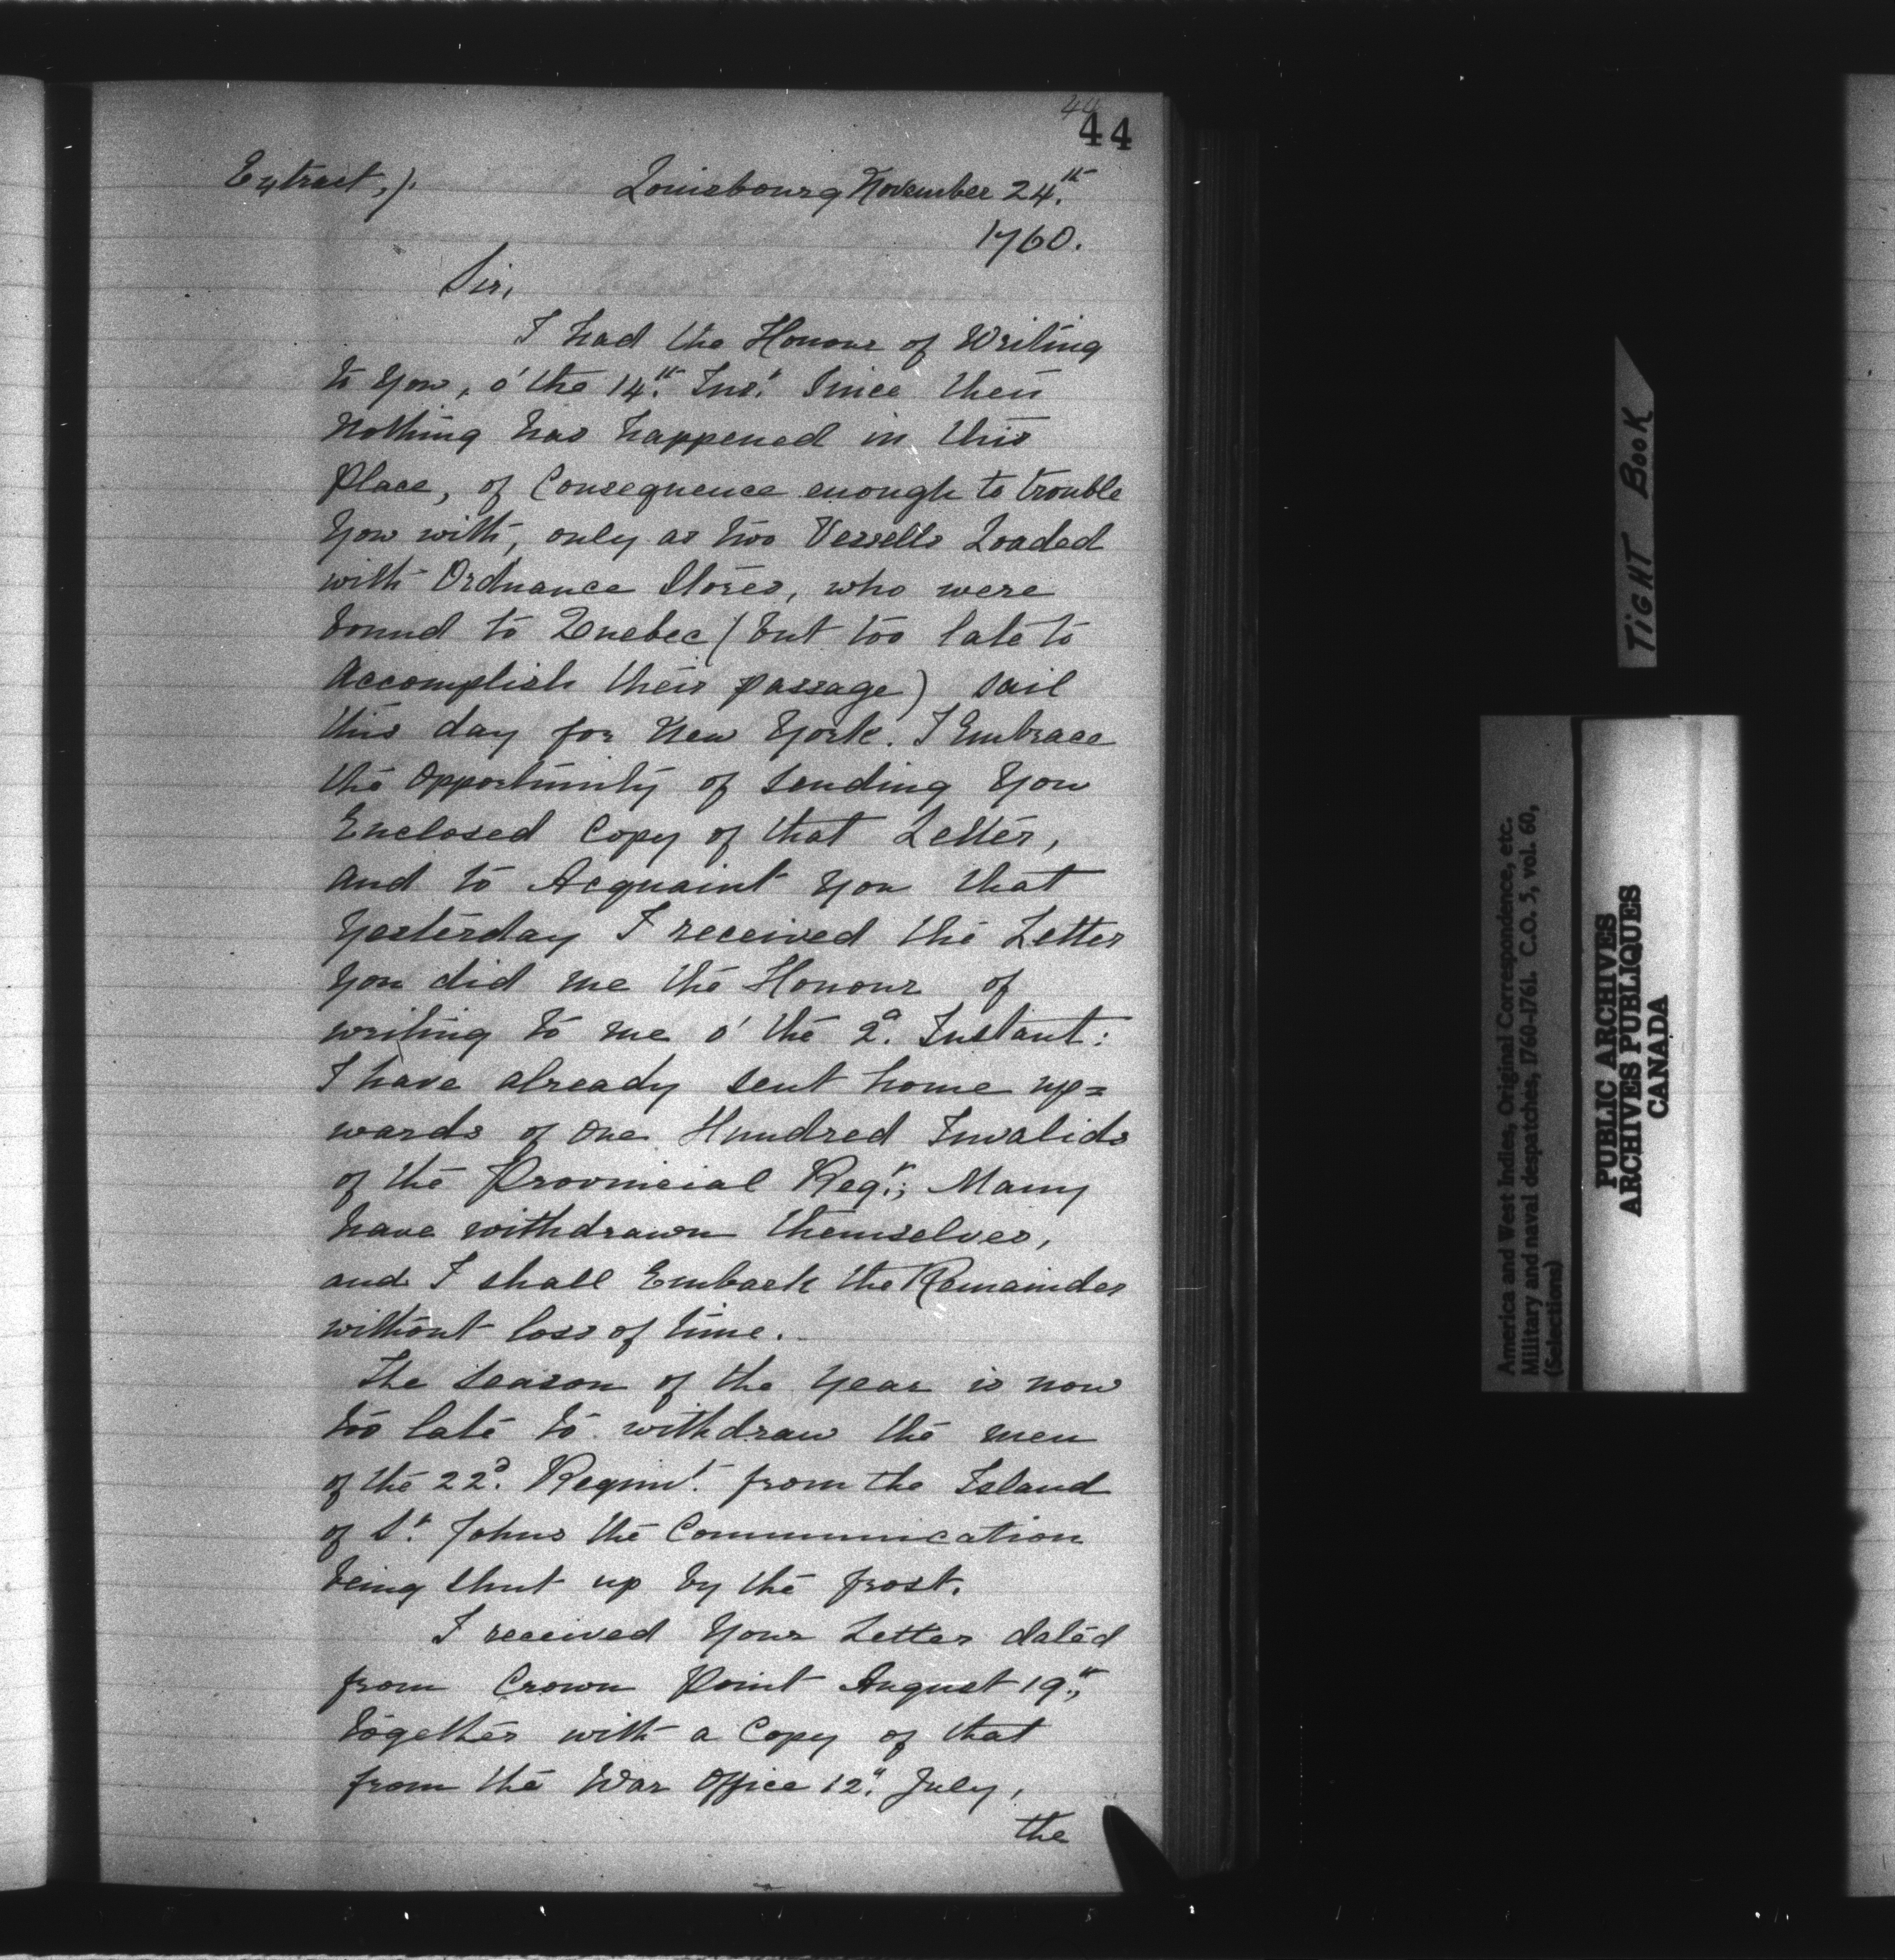 44
44
Extract,). Louisbourg November 24.th
1760.
Sir,
I had the Honour of Writing
to You, o' the 14.th Inst. Since then
Nothing has happened in this
Place, of Consequence enough to trouble
You with, only as two Vessells Loaded
with Ordnance Stores, who were
bound to Quebec (but too late to
Accomplish their passage) sail
this day for New York. I Embrace
the Opportunity of Sending You
Enclosed Copy of that Letter,
and to Acquaint You that
Yesterday I received the Letter
You did me the Honour of
writing to me o' the 2d. Instant:
I have already sent home up=
wards of One Hundred Invalids
of the Provincial Regts; Many
have withdrawn themselves,
and I shall Embark the Remainder
without loss of time.
The Season of the Year is now
too late to withdraw the men
of the 22d. Regimt. from the Island
of St. Johns the Communication
being shut up by the frost.
I received Your Letter dated
from Crown Point August 19th,
together with a Copy of that
from the War Office 12th. July,
the
TiGHT BOOK
America and West Indies, Original Correspondence, etc.
Military and naval despatches, 1760-1761. C.O. 5, vol. 60,
(Selections)
PUBLIC ARCHIVES
ARCHIVES PUBLIQUES
CANADA